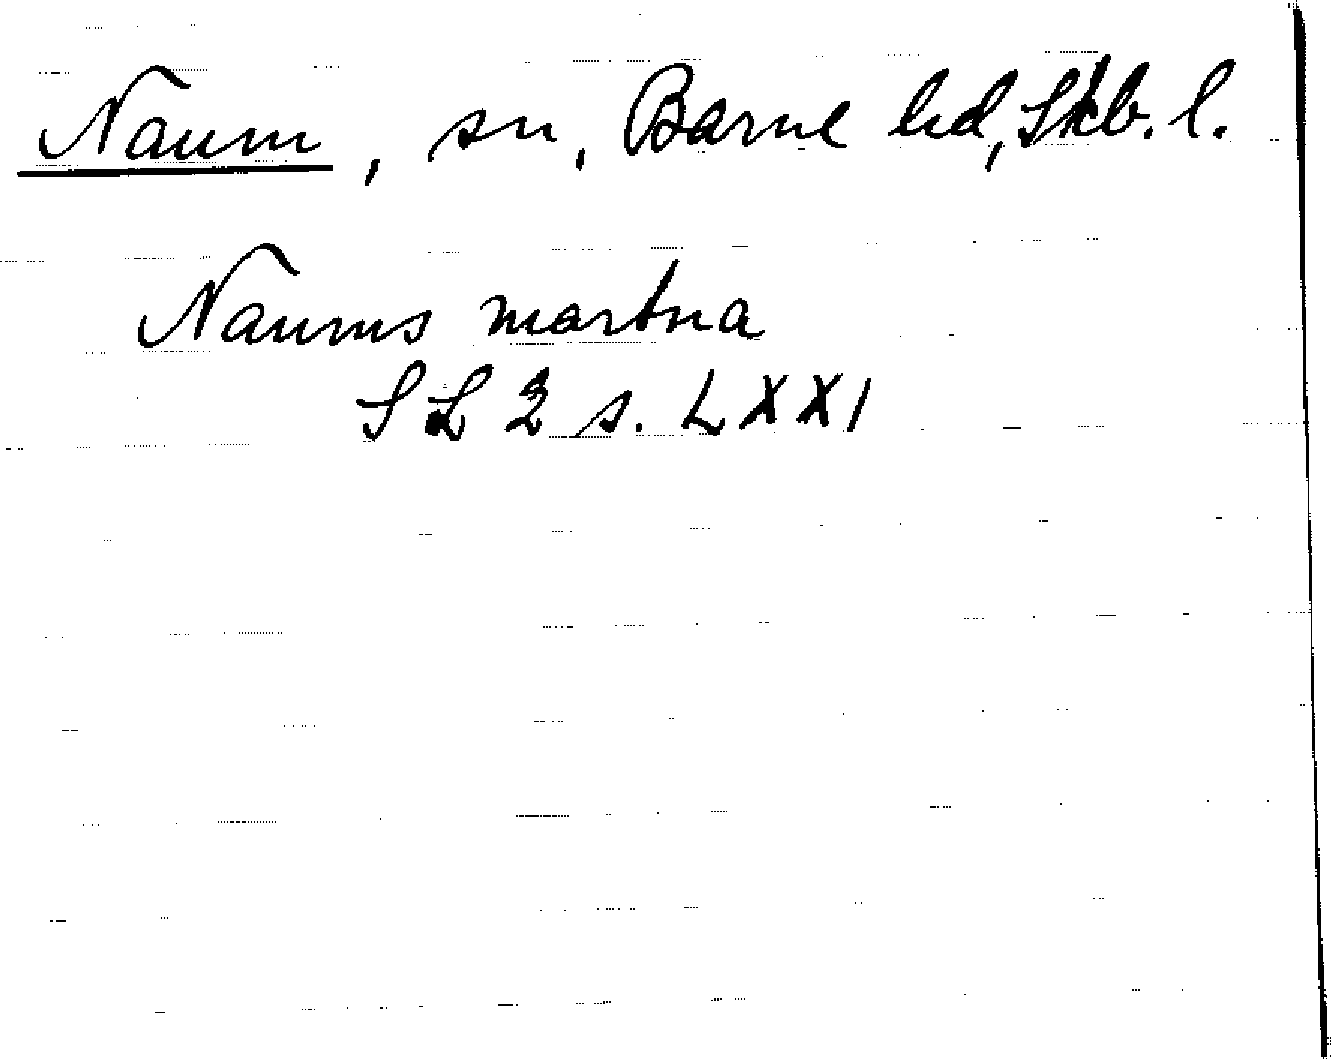 Naum, sn, Barne hd, Skb. l.
Naums martna
SL 2 s. LXXI